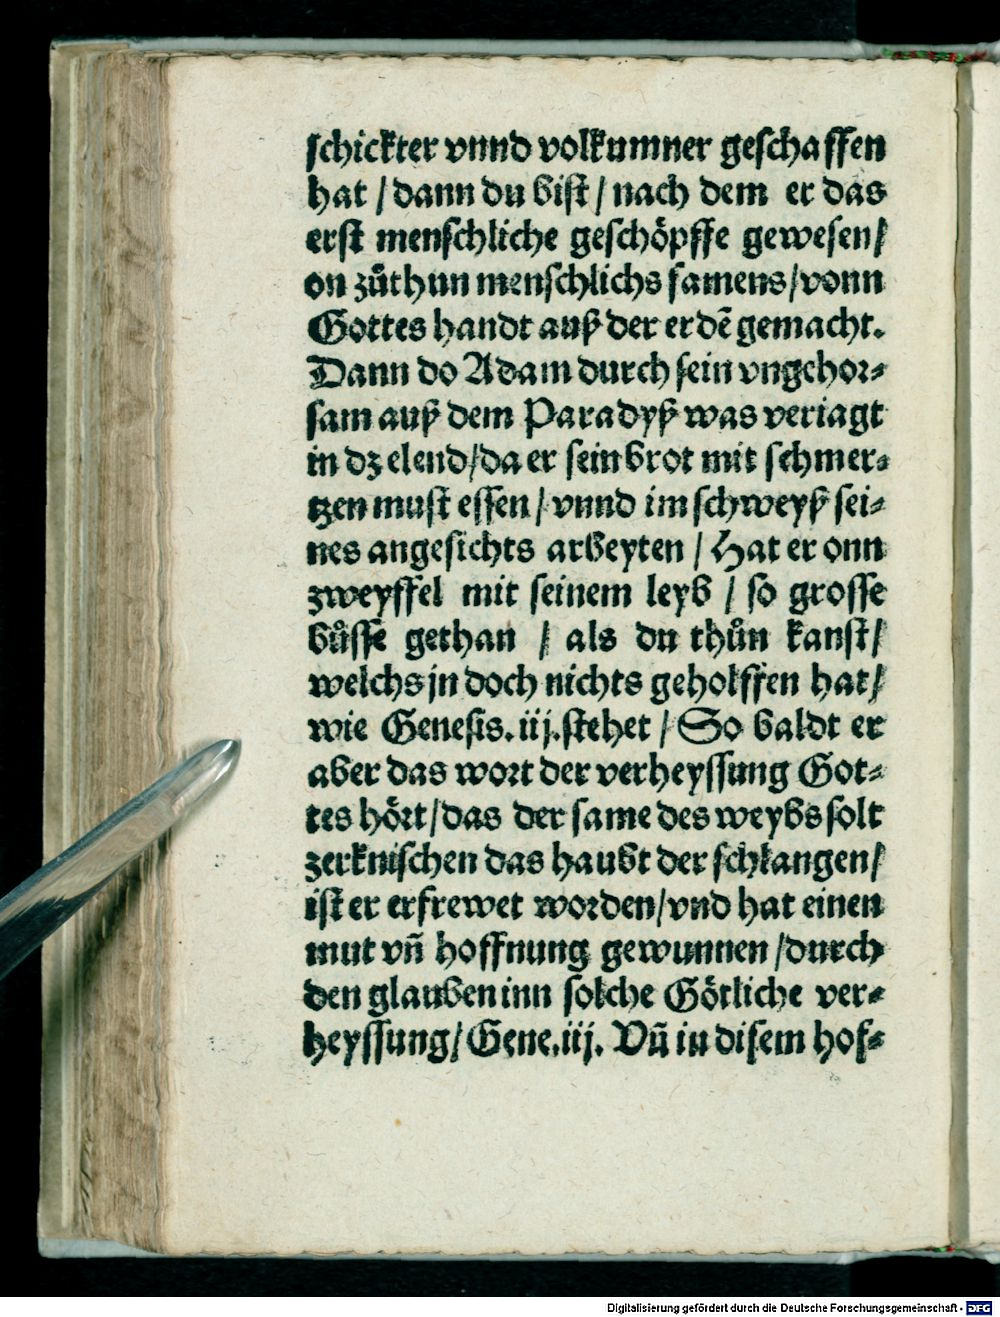 schickter vnnd volkumner geschaffen
hat / dann du bist / nach dem er das
erst menschliche geschöpffe gewesen /
on zůthun menschlichs samens / vonn
Gottes handt auß der erdē gemacht.
Dann do Adam durch sein vngehor⸗
sam auß dem Paradyß was veriagt
in dz elend / da er sein brot mit schmer⸗
tzen must essen / vnnd im schweyß sei⸗
nes angesichts arbeyten / Hat er onn
zweyffel mit seinem leyb / so grosse
bůsse gethan / als du thůn kanst /
welchs jn doch nichts geholffen hat /
wie Genesis. iij. stehet / So baldt er
aber das wort der verheyssung Got⸗
tes hört / das der same des weybs solt
zerknischen das haubt der schlangen /
ist er erfrewet worden / vnd hat einen
mut vn̄ hoffnung gewunnen / durch
den glauben inn solche Götliche ver⸗
heyssung / Gene. iij. Vn̄ in disem hof⸗
Digitalisierung gefördert durch die Deutsche Forschungsgemeinschaft - DFG